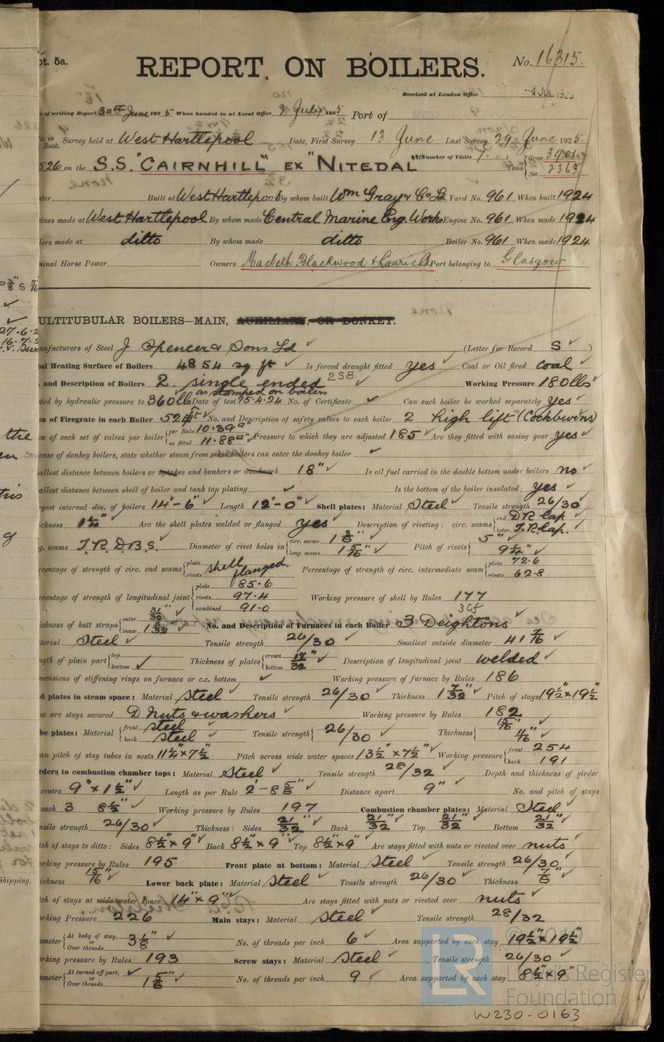 pt. 5a.
REPORT ON BOILERS.
No. 16315.
Received at London Office
of writing Report 30th June 1925 When handed in at Local Office 2 July 1925 Port of
Survey held at West Hartlepool Date, First Survey 13 June Last Survey 29 June 1925
Book.
526 on the S.S. "CAIRNHILL" EX "NITEDAL" (Number of Visits Gross Tons Net 2368
Built at West Hartlepool By whom built Wm Gray & Co Ld Yard No. 961 When built 1924
ines made at West Hartlepool By whom made Central Marine Eng Works Engine No. 961 When made 1924
lers made at ditto By whom made ditto Boiler No. 961 When made 1924
minal Horse Power Owners Macbeth Blackwood & Port belonging to Glasgow
ULTITUBULAR BOILERS—MAIN, AUXILIARY, OR DONKEY.
nufacturers of Steel J Spencer & Sons Ld (Letter for Record S )
al Heating Surface of Boilers 4854 sq ft Is forced draught fitted yes Coal or Oil fired coal
. and Description of Boilers 2. single ended Working Pressure 180 lbs
as stamped on boilers 258
ted by hydraulic pressure to 360 lbs Date of test 25.4.24 No. of Certificate Can each boiler be worked separately yes
a of Firegrate in each Boiler No. and Description of safety valves to each boiler 2 high lift (Cockburns)
a of each set of valves per boiler {per Rule 10.39 as fitted 11.88 Pressure to which they are adjusted 185 Are they fitted with easing gear yes
ase of donkey boilers, state whether steam from main boilers can enter the donkey boiler
allest distance between boilers or uptakes and bunkers or woodwork 18" Is oil fuel carried in the double bottom under boilers no
allest distance between shell of boiler and tank top plating Is the bottom of the boiler insulated yes
rgest internal dia. of boilers 14'-6" Length 12'-0" Shell plates: Material Steel Tensile strength 26/30
ickness Are the shell plates welded or flanged yes Description of riveting: circ. seams {end D R Lap. inter. T.R. Lap.
g. seams T.R.D.B.S. Diameter of rivet holes in {circ. seams long. seams Pitch of rivets { 5" 9 1/4"
rcentage of strength of circ. end seams {plate rivets shell flanged Percentage of strength of circ. intermediate seam {plate 72.6 rivets 62.8
rcentage of strength of longitudinal joint {plate 85.6 rivets 97.4 combined 91.0 Working pressure of shell by Rules 177
ickness of butt straps {outer inner No. and Description of Furnaces in each Boiler 3 Deightons
terial Steel Tensile strength 26/30 Smallest outside diameter 41 7/16"
ngth of plain part {top bottom Thickness of plates {crown bottom 17/32" Description of longitudinal joint welded
mensions of stiffening rings on furnace or c.c. bottom Working pressure of furnace by Rules 186
d plates in steam space: Material Steel Tensile strength 26/30 Thickness 1 7/32" Pitch of stays 19 1/2" x 19 1/2"
ow are stays secured D nuts & washers Working pressure by Rules 182
be plates: Material {front Steel back Steel Tensile strength { 26/30 Thickness { 15/16" 11/16"
an pitch of stay tubes in nests 11 1/4" x 7 1/2" Pitch across wide water spaces 13 1/2" x 7 1/2" Working pressure {front 254 back 191
rders to combustion chamber tops: Material Steel Tensile strength 28/32 Depth and thickness of girder
centre 9" x 1 1/2" Length as per Rule 2'-8 5/8" Distance apart 9" No. and pitch of stays
each 3 8 1/2" Working pressure by Rules 197 Combustion chamber plates: Material Steel
nsile strength 26/30 Thickness: Sides 21/32" Back 21/32" Top 21/32" Bottom 21/32"
tch of stays to ditto: Sides 8 1/2" x 9" Back 8 1/2" x 9" Top 8 1/2" x 9" Are stays fitted with nuts or riveted over nuts
orking pressure by Rules 195 Front plate at bottom: Material Steel Tensile strength 26/30
ickness 15/16" Lower back plate: Material Steel Tensile strength 26/30 Thickness 7/8"
tch of stays at wide water space 14" x 9" Are stays fitted with nuts or riveted over nuts
orking Pressure 226 Main stays: Material Steel Tensile strength 28/32
ameter {At body of stay, or Over threads 3 1/8" No. of threads per inch 6 Area supported by each stay 19 1/2" x 19 1/2"
orking pressure by Rules 193 Screw stays: Material Steel Tensile strength 26/30
ameter {At turned off part, or Over threads 1 5/8" No. of threads per inch 9 Area supported by each stay 8 1/2" x 9"
LR
Lloyd's Register
Foundation
W230-0163
the
Shipping.